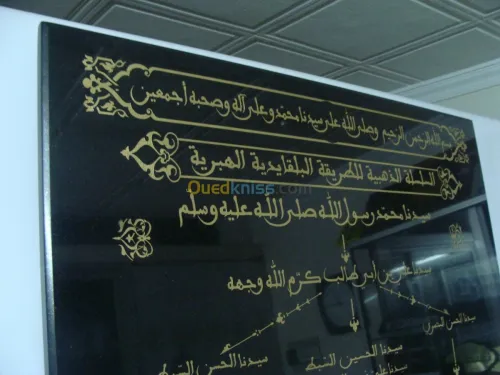 بسم الله الرحمن الرحيم وصلى الله على سيدنا محمد وعلى آله وصحبه أجمعين
السلسلة الذهبية للطريقة البلقايدية الهبرية
Ouedkniss.com
سيدنا محمد رسول الله صلى الله عليه وسلم
سيدنا علي بن أبي طالب كرم الله وجهه
سيدنا الحسن البصري
سيدنا الحسين السبط
سيدنا الحسن السبط